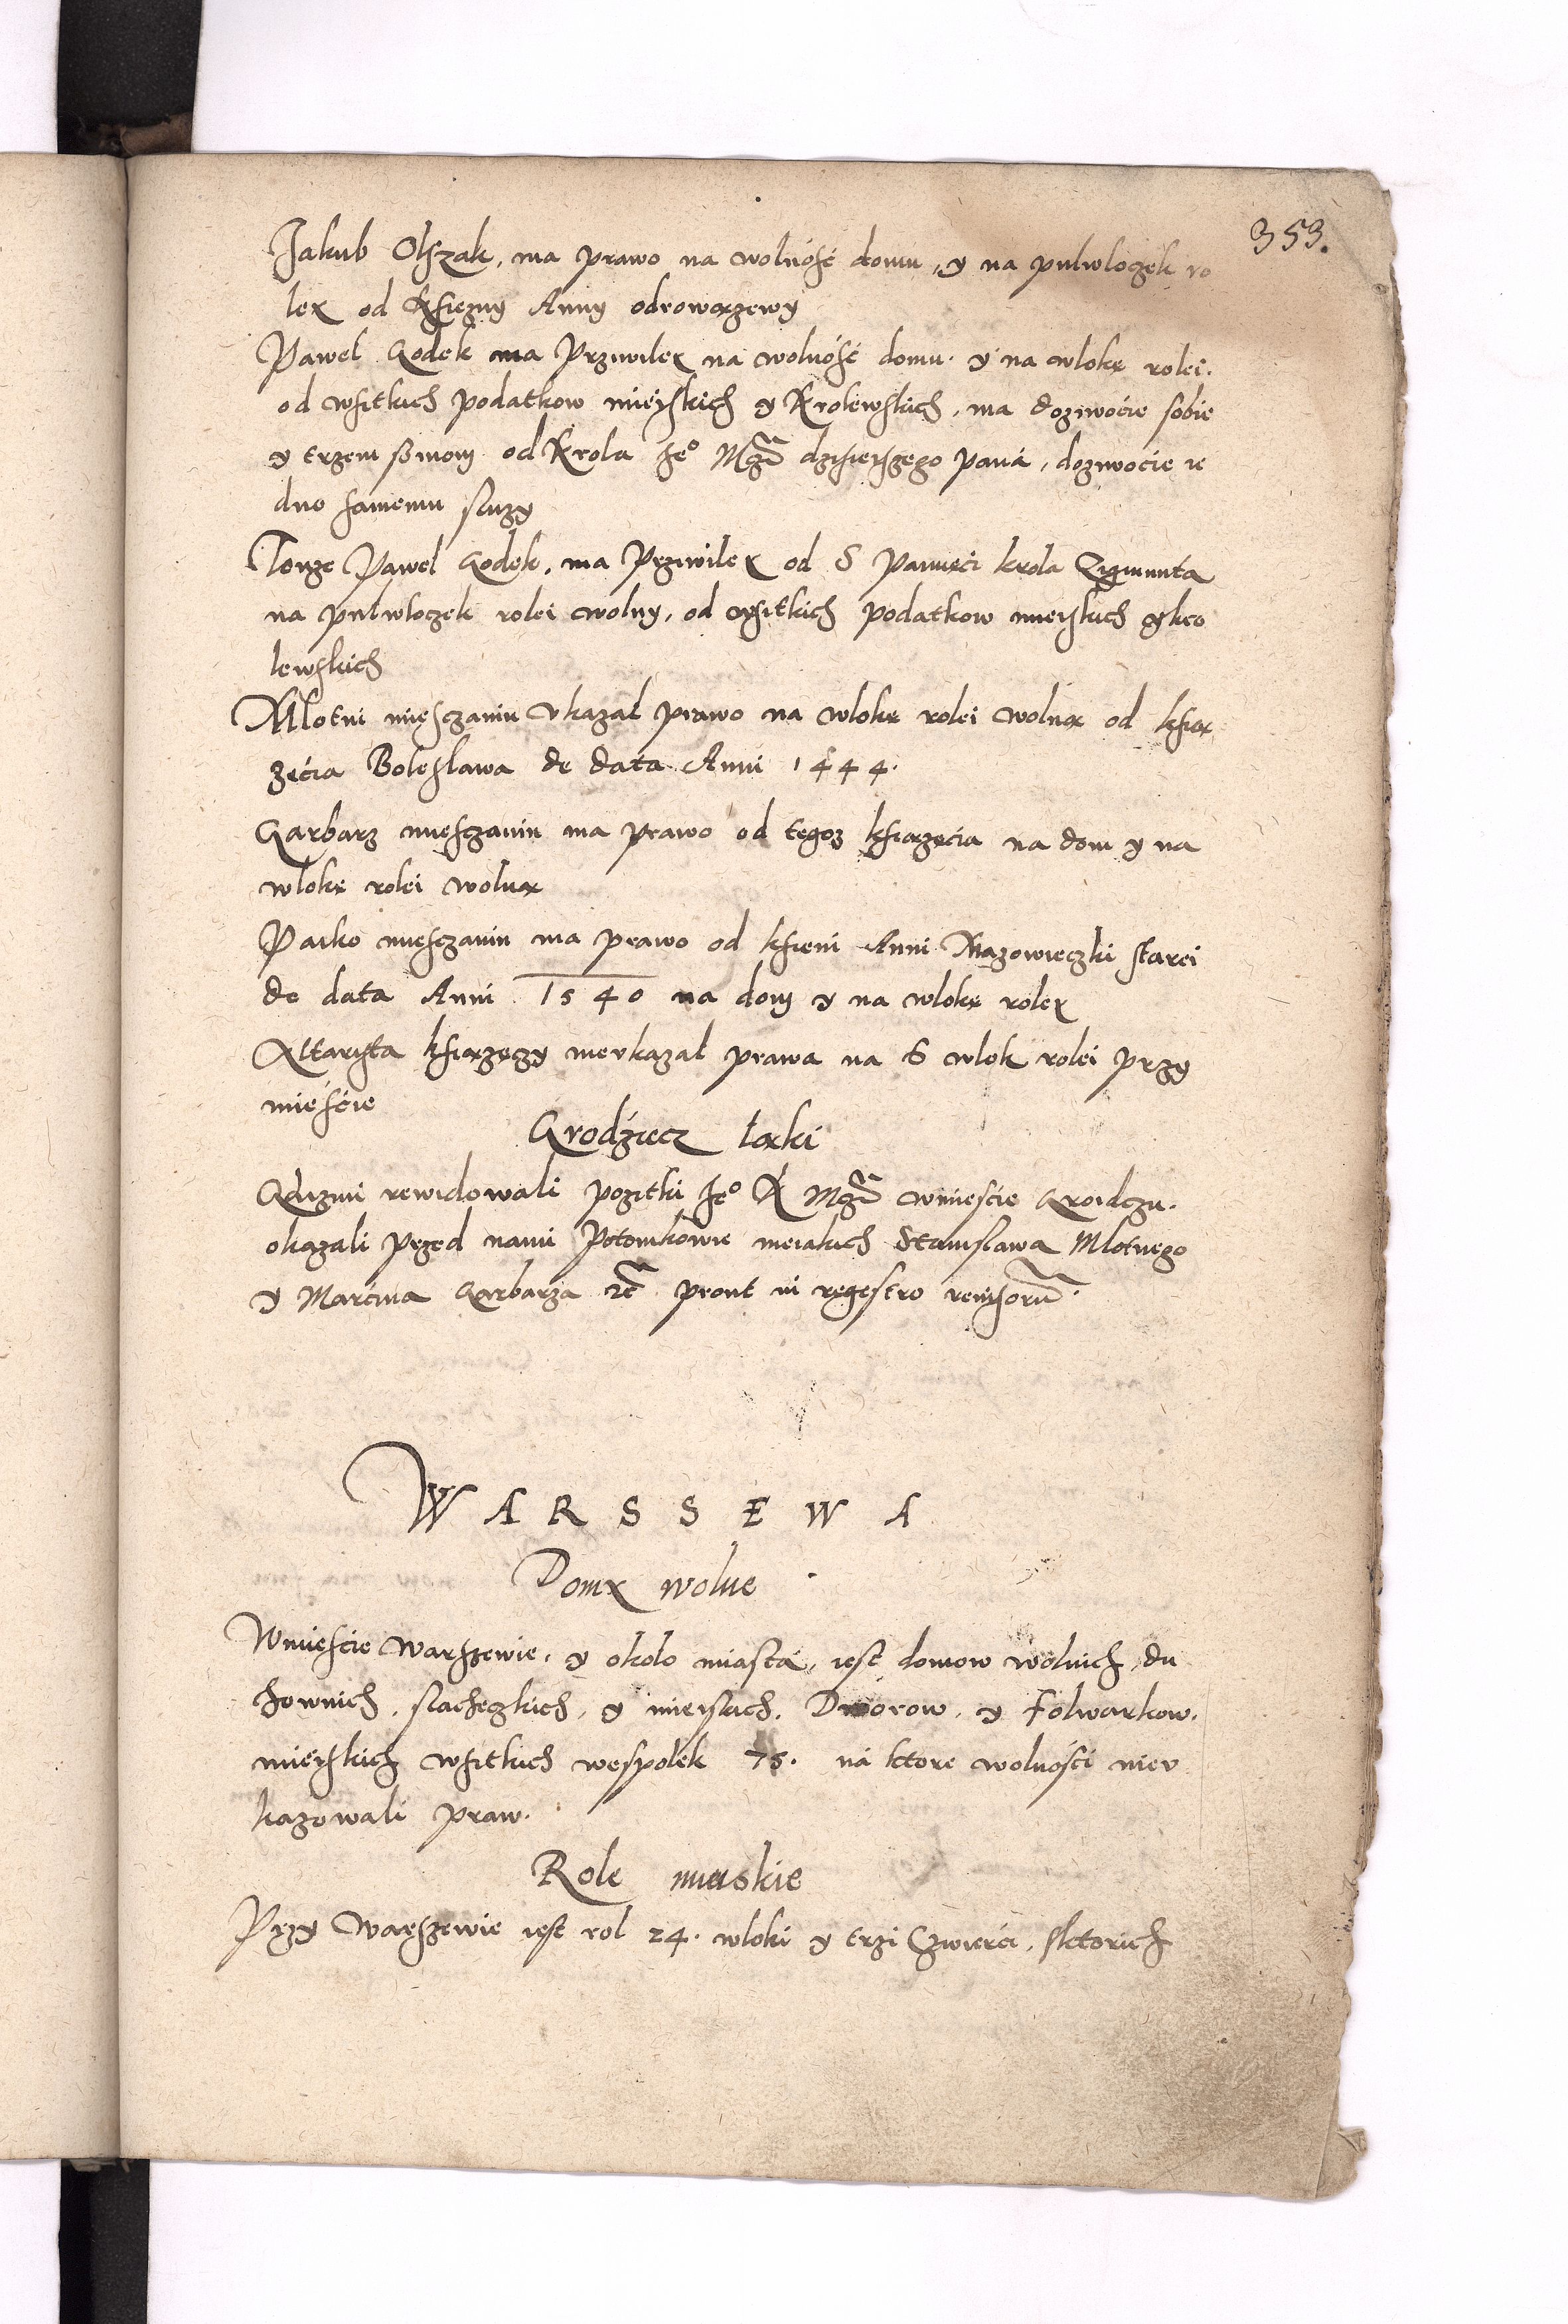 353.
Jakub Olszak, ma prawo na wolność domu, y na pulwloczek ro
lex od Xsiezny Anny odrowązewy
Pawel Godek ma Przwilex na wolność domu. y na wlokę rolei.
od wsitkich podatkow mieyskich y Krolewskich, ma dozwocie sobie
y trzem sinom od Krola Jeº Mczi dzisieiszego pana, dozwocie ie
dno samemu sluzy
Tenze Pawel Godek, ma Przwilex od S Pamięci krola Zigmunta
na pulwloczek rolei wolny, od wsitkich podatkow mieiskich y kro
lewskich
Mlotni miesczanin vkazal prawo na wlokę rolei wolną od ksiąx
zęcia Boleslawa de data Anni 1444.
Garbarz miesczanin ma prawo od tegoz ksiązęcia na dom y na
wlokę rolei wolną
Parko miesczanin ma prawo od ksieni Anni Mazowieczki starei
de data Anni 1540 na dom y na wlokę rolex
Altarista ksiązęczy nievkazal prawa na 6 wlok rolei przy
mieście
Grodziecz łąki
Gdizmi rewidowali pozitki Jeº K Mczi wmieście Groidczu.
okazali przed nami Potomkowie nieiakich Stanislawa Mlotnego
y Marcina Garbarza etc prout in regestro reuisorum.
WARSSEWA
Domy wolne
Wmieście Warszewie, y okolo miasta, iest domow wolnich, du
chownich, slacheczkich, y mieiskich, Dworow, y Folwarkow.
mieiskich wsitkich wespolek 75. na ktore wolności niev
kazowali praw.
Role mieiskie
Przy Warszewie iest rol 24. wloki y trzi Czwierci, sktorich